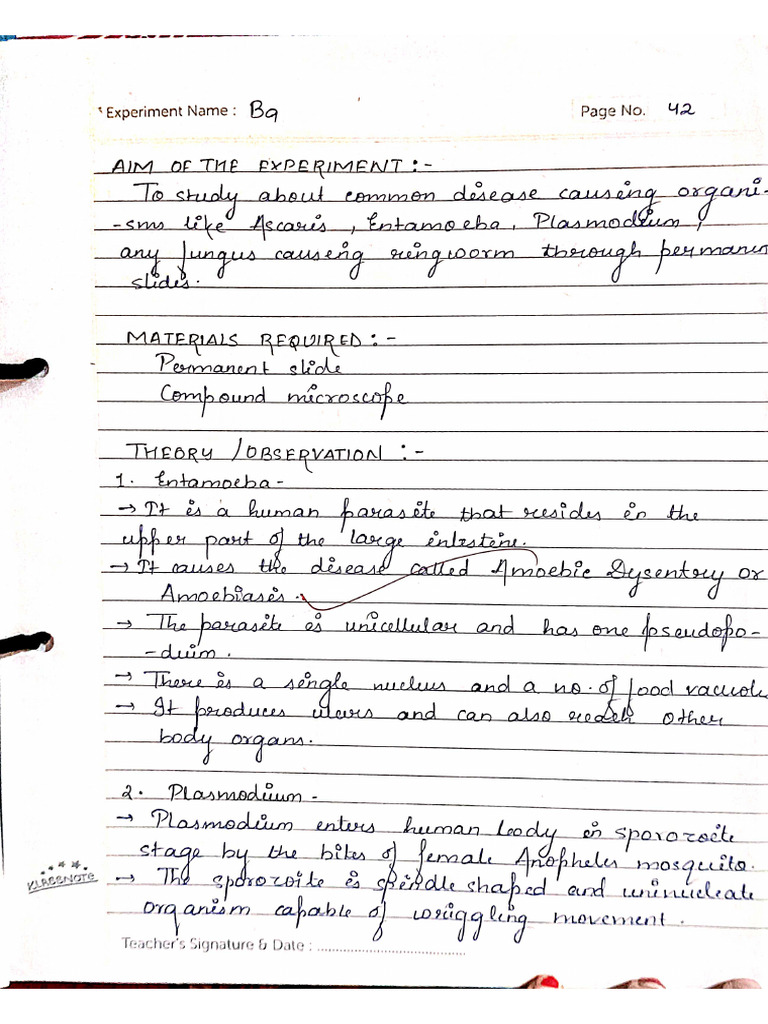 Experiment Name : B9 Page No. 42
AIM OF THE EXPERIMENT :-
To study about common disease causing organi-
-sms like Ascaris, Entamoeba, Plasmodium,
any fungus causing ringworm through permanen
slides.
MATERIALS REQUIRED :-
Permanent slide
Compound microscope
THEORY / OBSERVATION :-
1. Entamoeba -
→ It is a human parasite that resides in the
upper part of the large intestine.
→ It causes the disease called Amoebic Dysentry or
Amoebiasis.
→ The parasite is unicellular and has one pseudopo-
-dium.
→ There is a single nucleus and a no. of food vacuole
→ It produces ulcers and can also reach other
body organs.
2. Plasmodium -
→ Plasmodium enters human body in sporozoite
stage by the bites of female Anopheles mosquito.
→ The sporozoite is spindle shaped and uninucleate
organism capable of wriggling movement.
KLASSNOTE
Teacher's Signature & Date : ........................................